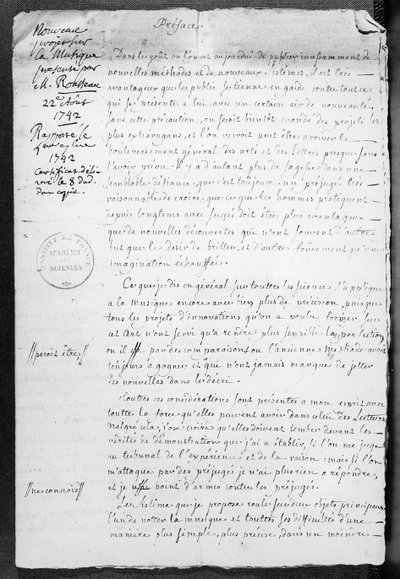 Préface.
Nouveau
projet sur
la Musique
présenté par
M. Rousseau
22e Aout
1742
Rapporté le
5 septembre
1742
Certificat déli-
vré le 8 dud.
Dans le goût ou l'on est aujourdui de publier incessamment de
nouvelles méthodes et de nouveaux sistèmes, il est très
avantageux que le public se tienne en garde contre tout ce
qui se présente à lui avec un certain air de nouveauté.
Sans cette précaution, on seroit bientôt inondé des projets les
plus extravagans, et l'on verroit peut être arriver le
bouleversement général des arts et des lettres presque sans
l'avoir prévu. Il y a d'autant plus de sagesse dans une
semblable défiance, que c'est toujours un préjugé très
raisonnable de croire que ce que les hommes pratiquent
depuis longtems avec succès doit être plus avantageux
que de nouvelles découvertes qui n'ont souvent d'autres
but que le desir de briller, et d'autre fondement qu'une
imagination échauffée.
INSTITUT DE FRANCE
ACADÉMIE
DES
SCIENCES
Ce que je dis en général sur toutes les sciences, s'applique
à la musique encore avec bien plus de précision, puisque
tous les projets d'innovations qu'on a voulu former sur
cet Art n'ont servi qu'à rendre plus sensible la perfection
//peroit être//
ou il par des comparaisons ou l'ancienne Méthode avoit
toujours à gagner et qui n'ont jamais manqué de jetter
les nouvelles dans le décri.
Touttes ces considérations sont présentes à mon esprit avec
toutte la force qu'elles peuvent avoir dans celui des Lecteurs
malgré cela, j'ose croire qu'elles doivent tomber devant les
vérités de démonstrations que j'ai à établir, si l'on me juge
au tribunal de l'expérience et de la raison: mais si l'on
m'attaque par des préjugés je n'ai plus rien à répondre,
//ne connois//
et je point d'armes contre les préjugés.
Le sistème que je propose roule sur deux objets principaux
l'un de notter la musique et touttes ses difficultés d'une
manière plus simple, plus précise, dans un moindre